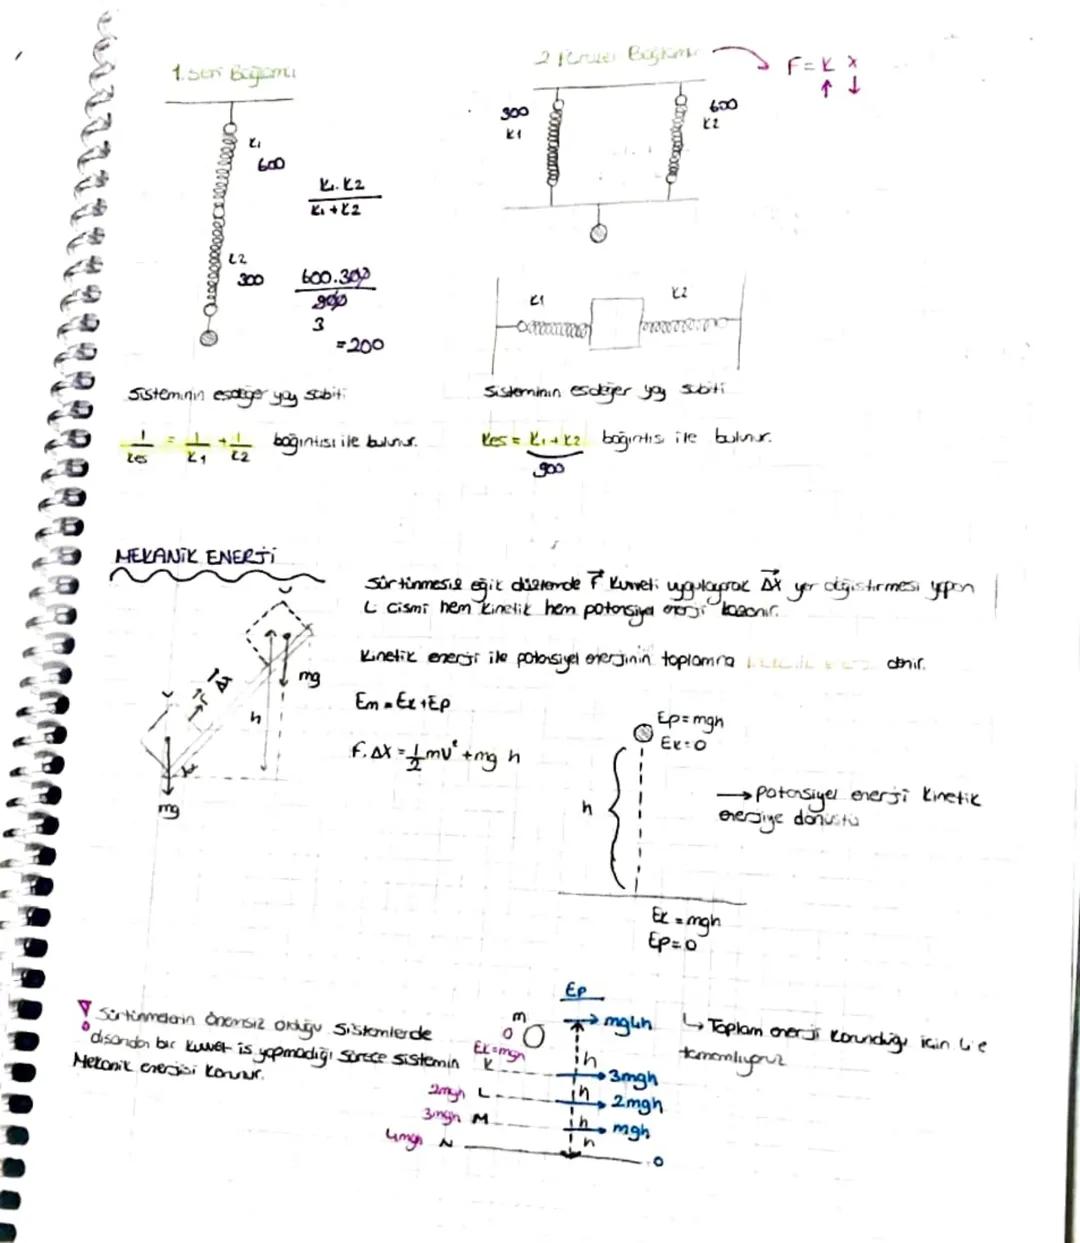 1. Seri Bağlama
K1
600
K1.K2
K1+K2
K2
300
600.300
900
3
=200
Sistemin eşdeğer yay sabiti
1/keş = 1/K1 + 1/K2 bağıntısı ile bulunur.
2 Paralel Bağlama
F=K X
300
K1
600
K2
K1
K2
Sisteminin eşdeğer yay sabiti
Keş = K1+K2 bağıntısı ile bulunur.
900
MEKANİK ENERJİ
Sürtünmesiz eğik düzlemde F kuvveti uygulayarak Δx yer değiştirmesi yapan
L cismi hem kinetik hem potansiyel enerji kazanır.
Kinetik enerji ile potansiyel enerjinin toplamına denir.
Em = Ek+Ep
F.Δx = 1/2 mv² + mg h
F
Δx
h
mg
mg
Ep=mgh
Ek=0
h
→ potansiyel enerji kinetik
enerjiye dönüştü
Ek=mgh
Ep=0
Sürtünmelerin önemsiz olduğu sistemlerde
dışarıdan bir kuvvet iş yapmadığı sürece sistemin
Mekanik enerjisi korunur.
Ep
m
0
mg4h
Ek=mgh
K
h
3mgh
2mgh L
h
2mgh
3mgh M
h
mgh
4mgh N
h
0
↳ Toplam enerji korunduğu için 4'e
tamamlıyoruz